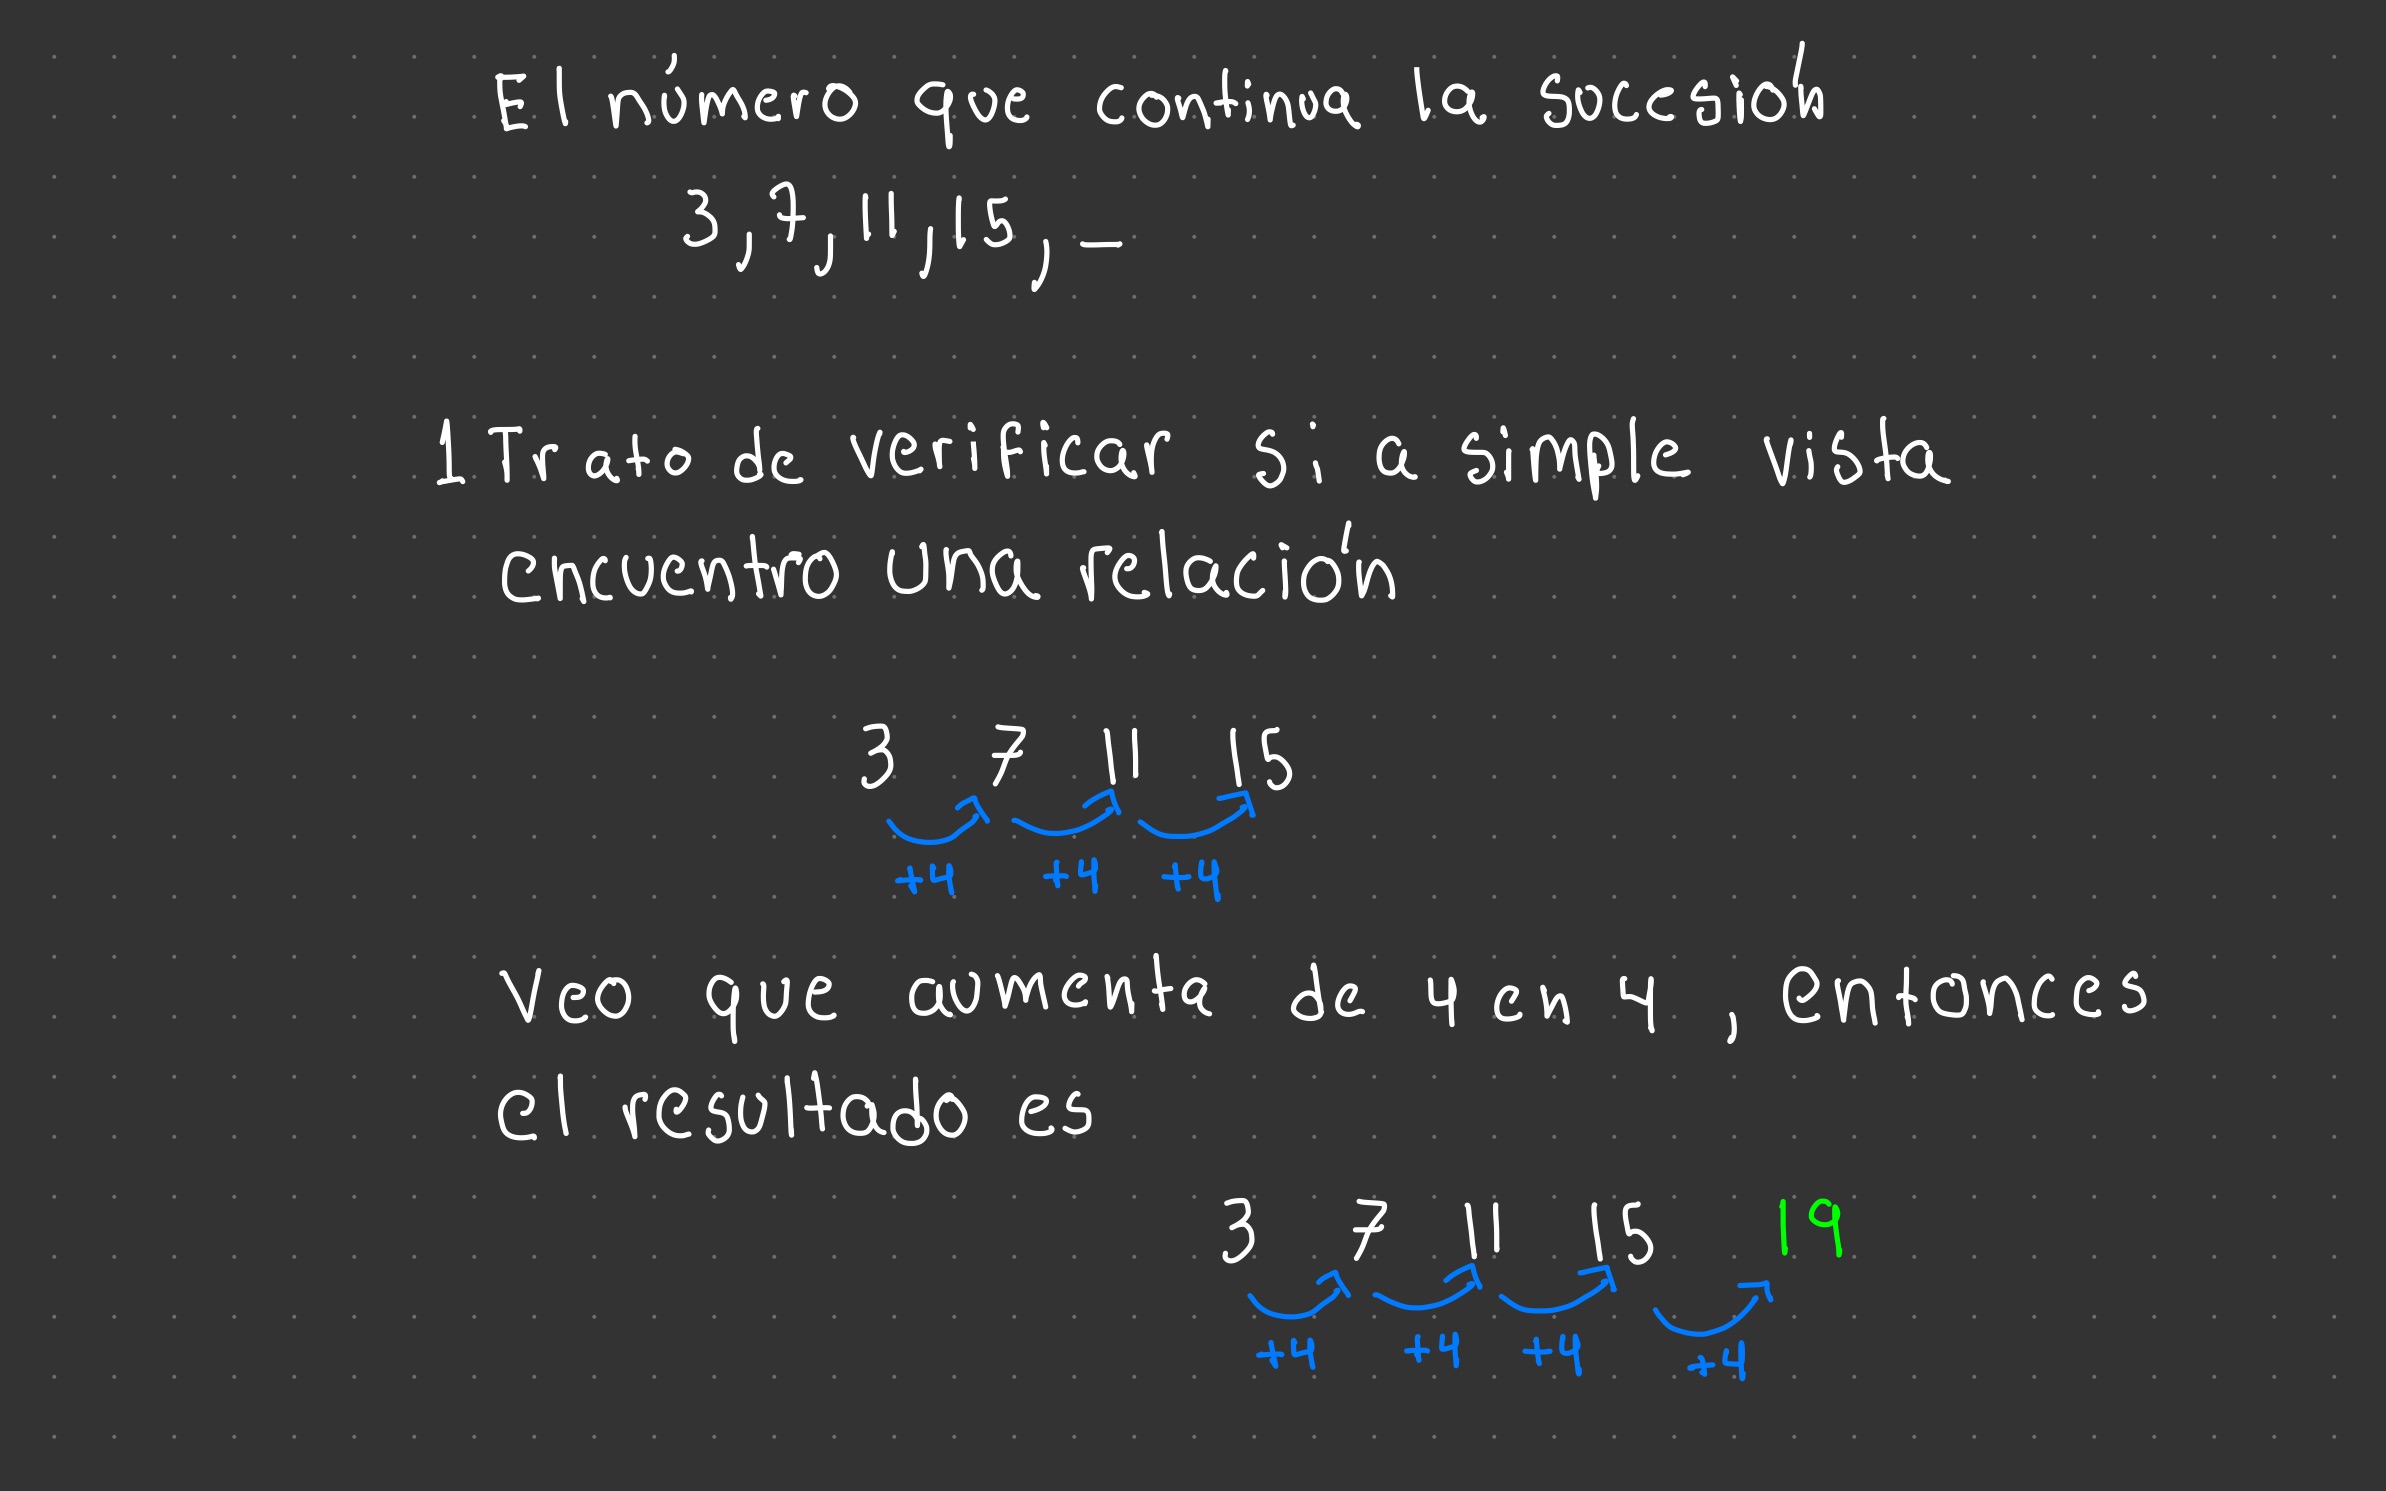 El número que continua la sucesión
3, 7, 11, 15, _
1 Trato de verificar si a simple vista
encuentro una relación
3 7 11 15
+4 +4 +4
Veo que aumenta de 4 en 4, entonces
el resultado es
3 7 11 15 19
+4 +4 +4 +4